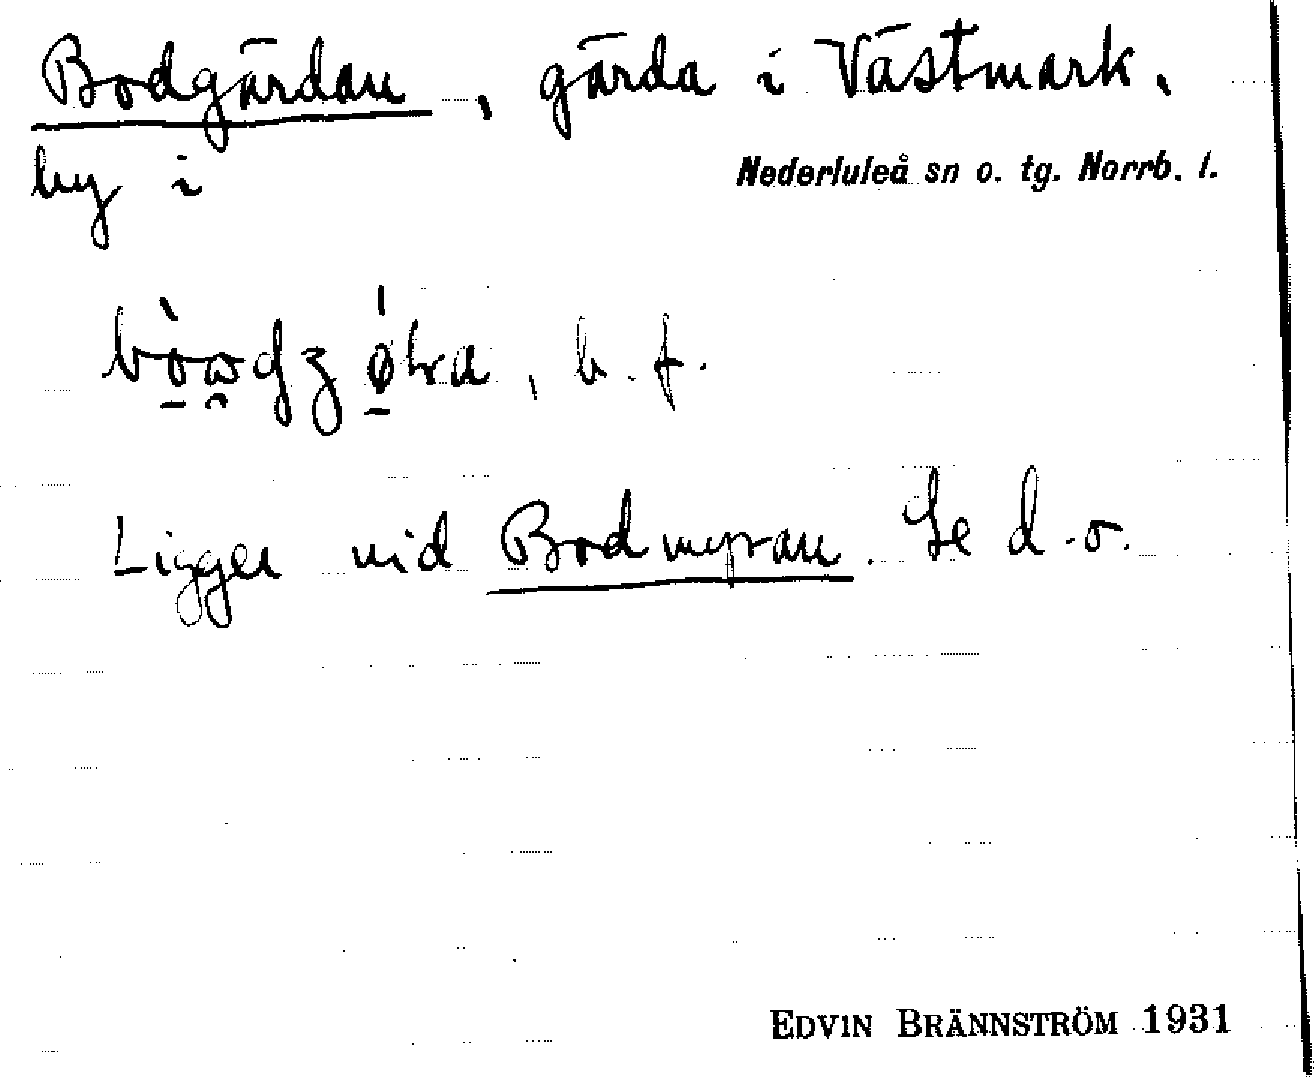 Bodgärdan, gärda i Västmark,
by i Nederluleå sn o. tg. Norrb. l.
b. f.
Ligger vid Bodmyran. Se d.o.
EDVIN BRÄNNSTRÖM 1931